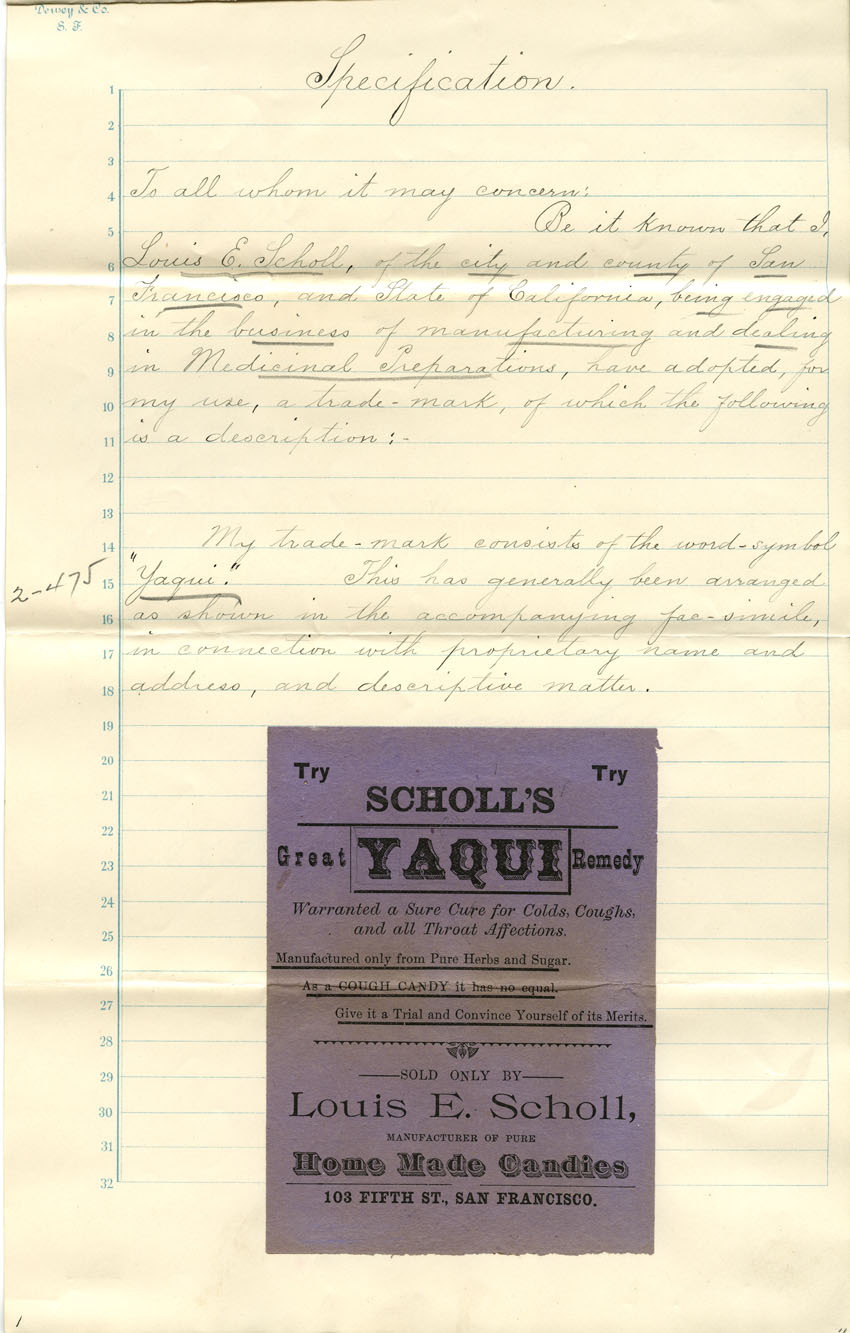 Dewey & Co.
S. F.
Specification.
1
2
3
4 To all whom it may concern:
5 Be it known that I,
6 Louis E. Scholl, of the city and county of San
7 Francisco, and State of California, being engaged
8 in the business of manufacturing and dealing
9 in Medicinal Preparations, have adopted, for
10 my use, a trade-mark, of which the following
11 is a description:-
12
13
14 My trade-mark consists of the word-symbol
2-475
15 "Yaqui." This has generally been arranged
16 as shown in the accompanying fac-simile,
17 in connection with proprietary name and
18 address, and descriptive matter.
19
20
21
22
23
24
25
26
27
28
29
30
31
32
Try Try
SCHOLL'S
Great YAQUI Remedy
Warranted a Sure Cure for Colds, Coughs,
and all Throat Affections.
Manufactured only from Pure Herbs and Sugar.
As a COUGH CANDY it has no equal.
Give it a Trial and Convince Yourself of its Merits.
SOLD ONLY BY
Louis E. Scholl,
MANUFACTURER OF PURE
Home Made Candies
103 FIFTH ST., SAN FRANCISCO.